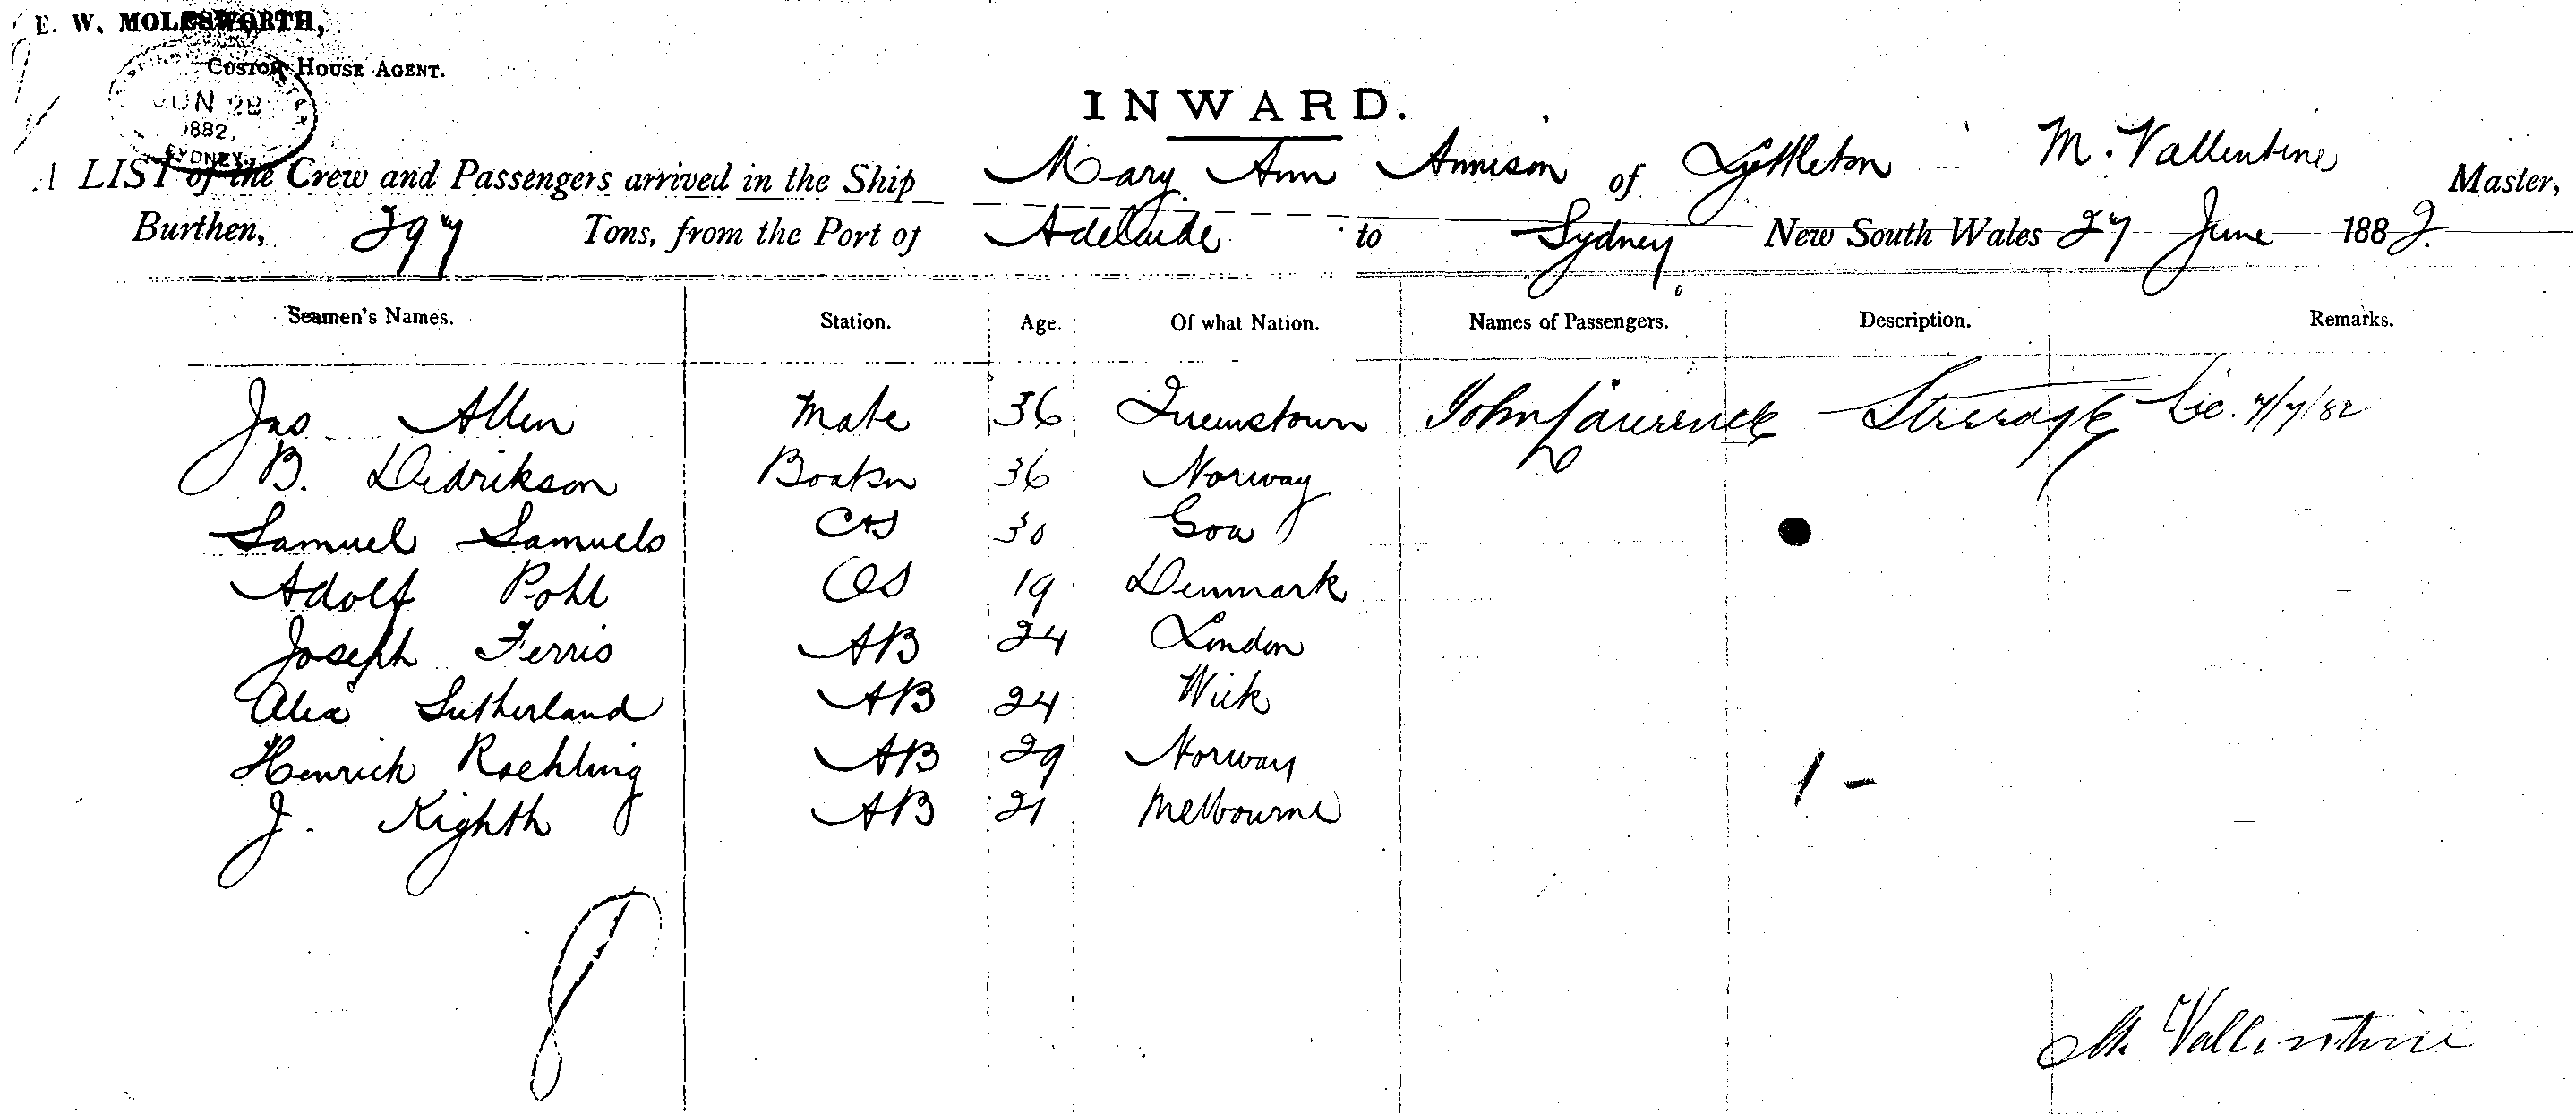 E. W. MOLESWORTH,
CUSTOM HOUSE AGENT.
JUN 28
1882
SYDNEY
INWARD.
A LIST of the Crew and Passengers arrived in the Ship Mary Ann Annison of Lyttleton M. Vallentine Master,
Burthen, 297 Tons, from the Port of Adelaide to Sydney New South Wales 27 June 1882.
Seamen's Names. Station. Age. Of what Nation. Names of Passengers. Description. Remarks.
Jas Allen Mate 36 Queenstown John Lawrence Steerage 4/7/82
B. Didrikson Boatsn 36 Norway
Samuel Samuels C&S 30 Goa
Adolf Pohl OS 19 Denmark
Joseph Ferris AB 24 London
Alex Sutherland AB 24 Wick
Henrich Roehling AB 29 Norway
J. Kighth AB 21 Melbourne
1 -
8
M. Vallintine